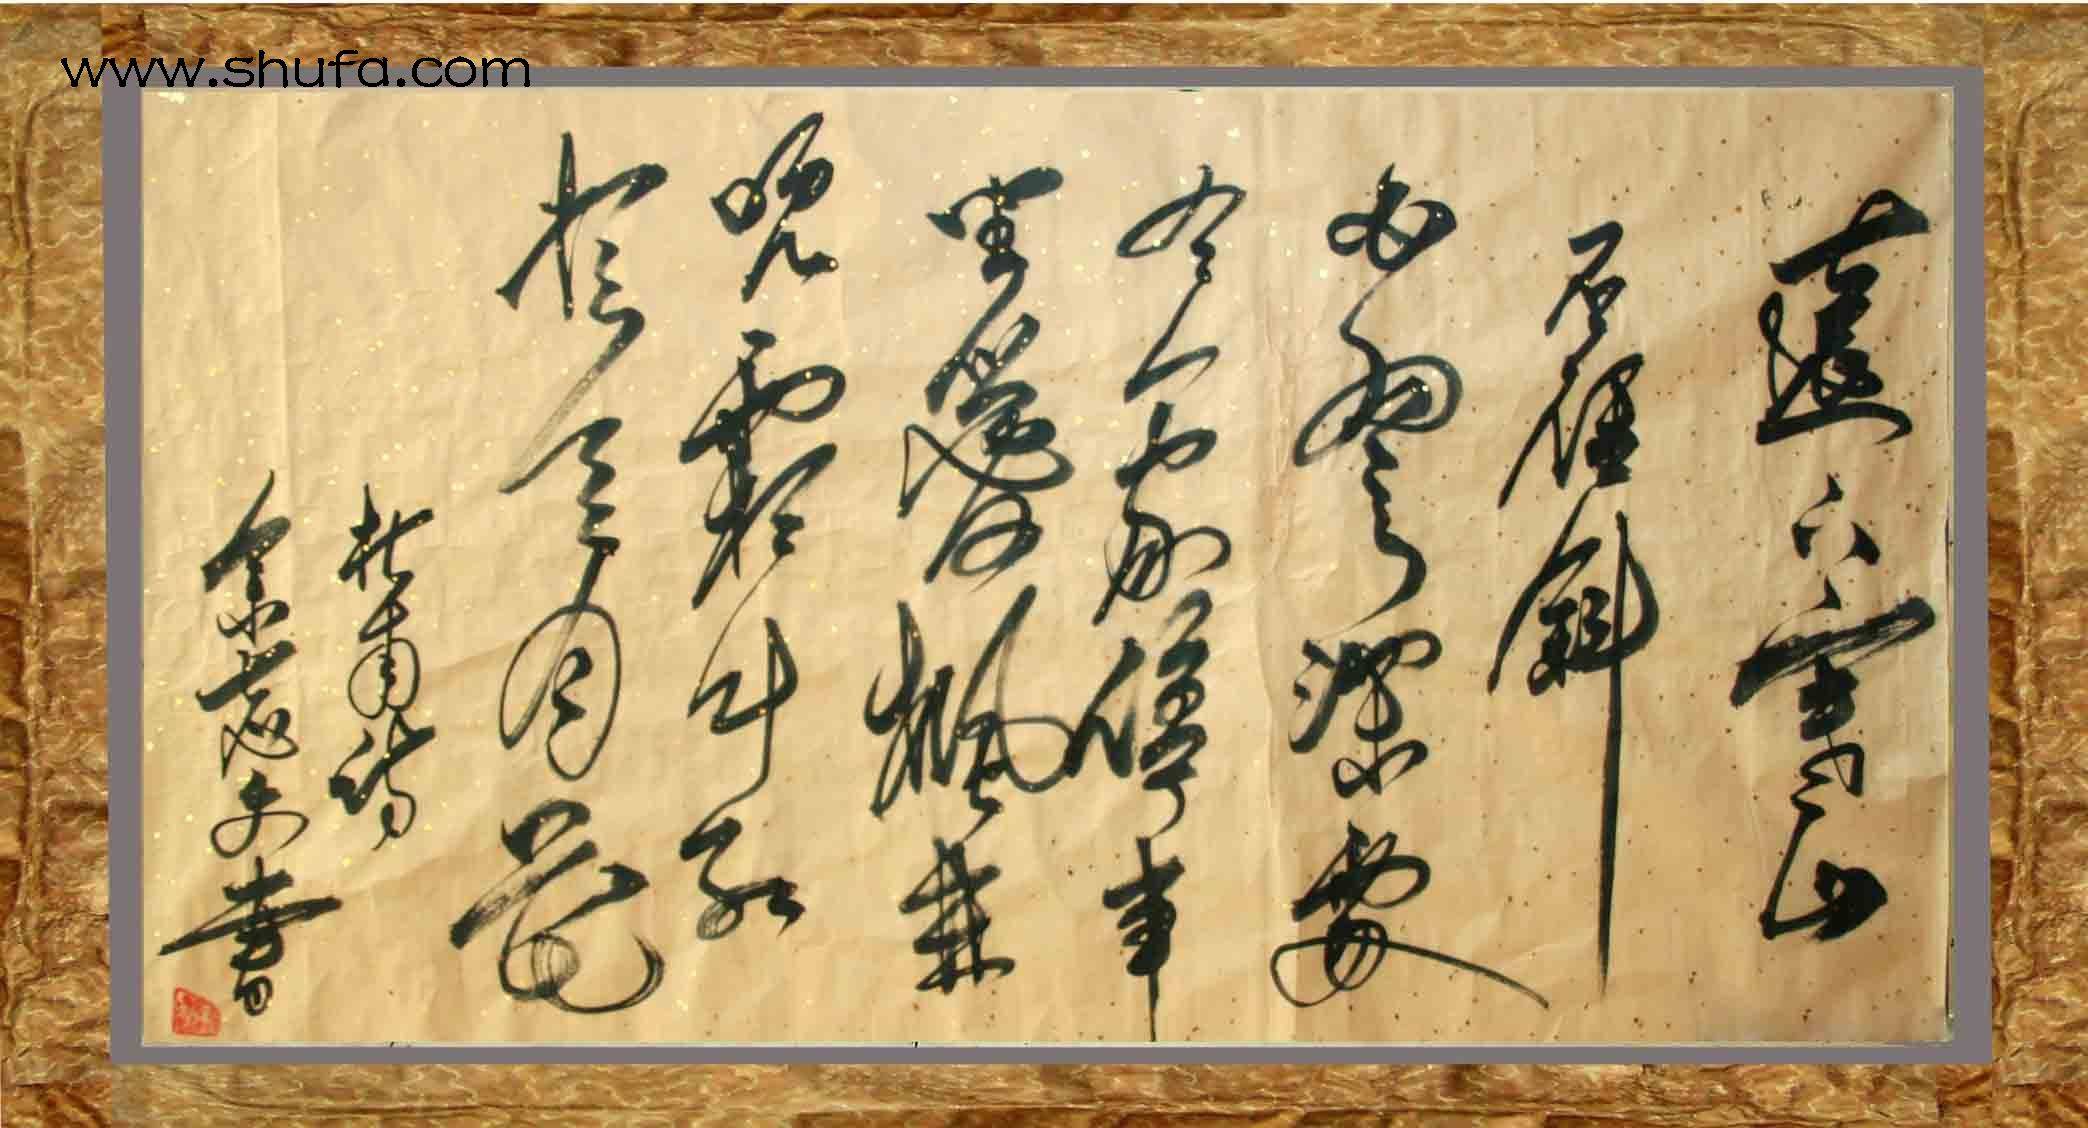 www.shufa.com
遠上寒山
石徑斜
白雲深處
有人家停車
坐愛楓林
晚霜叶紅
於二月花
杜甫詩
書